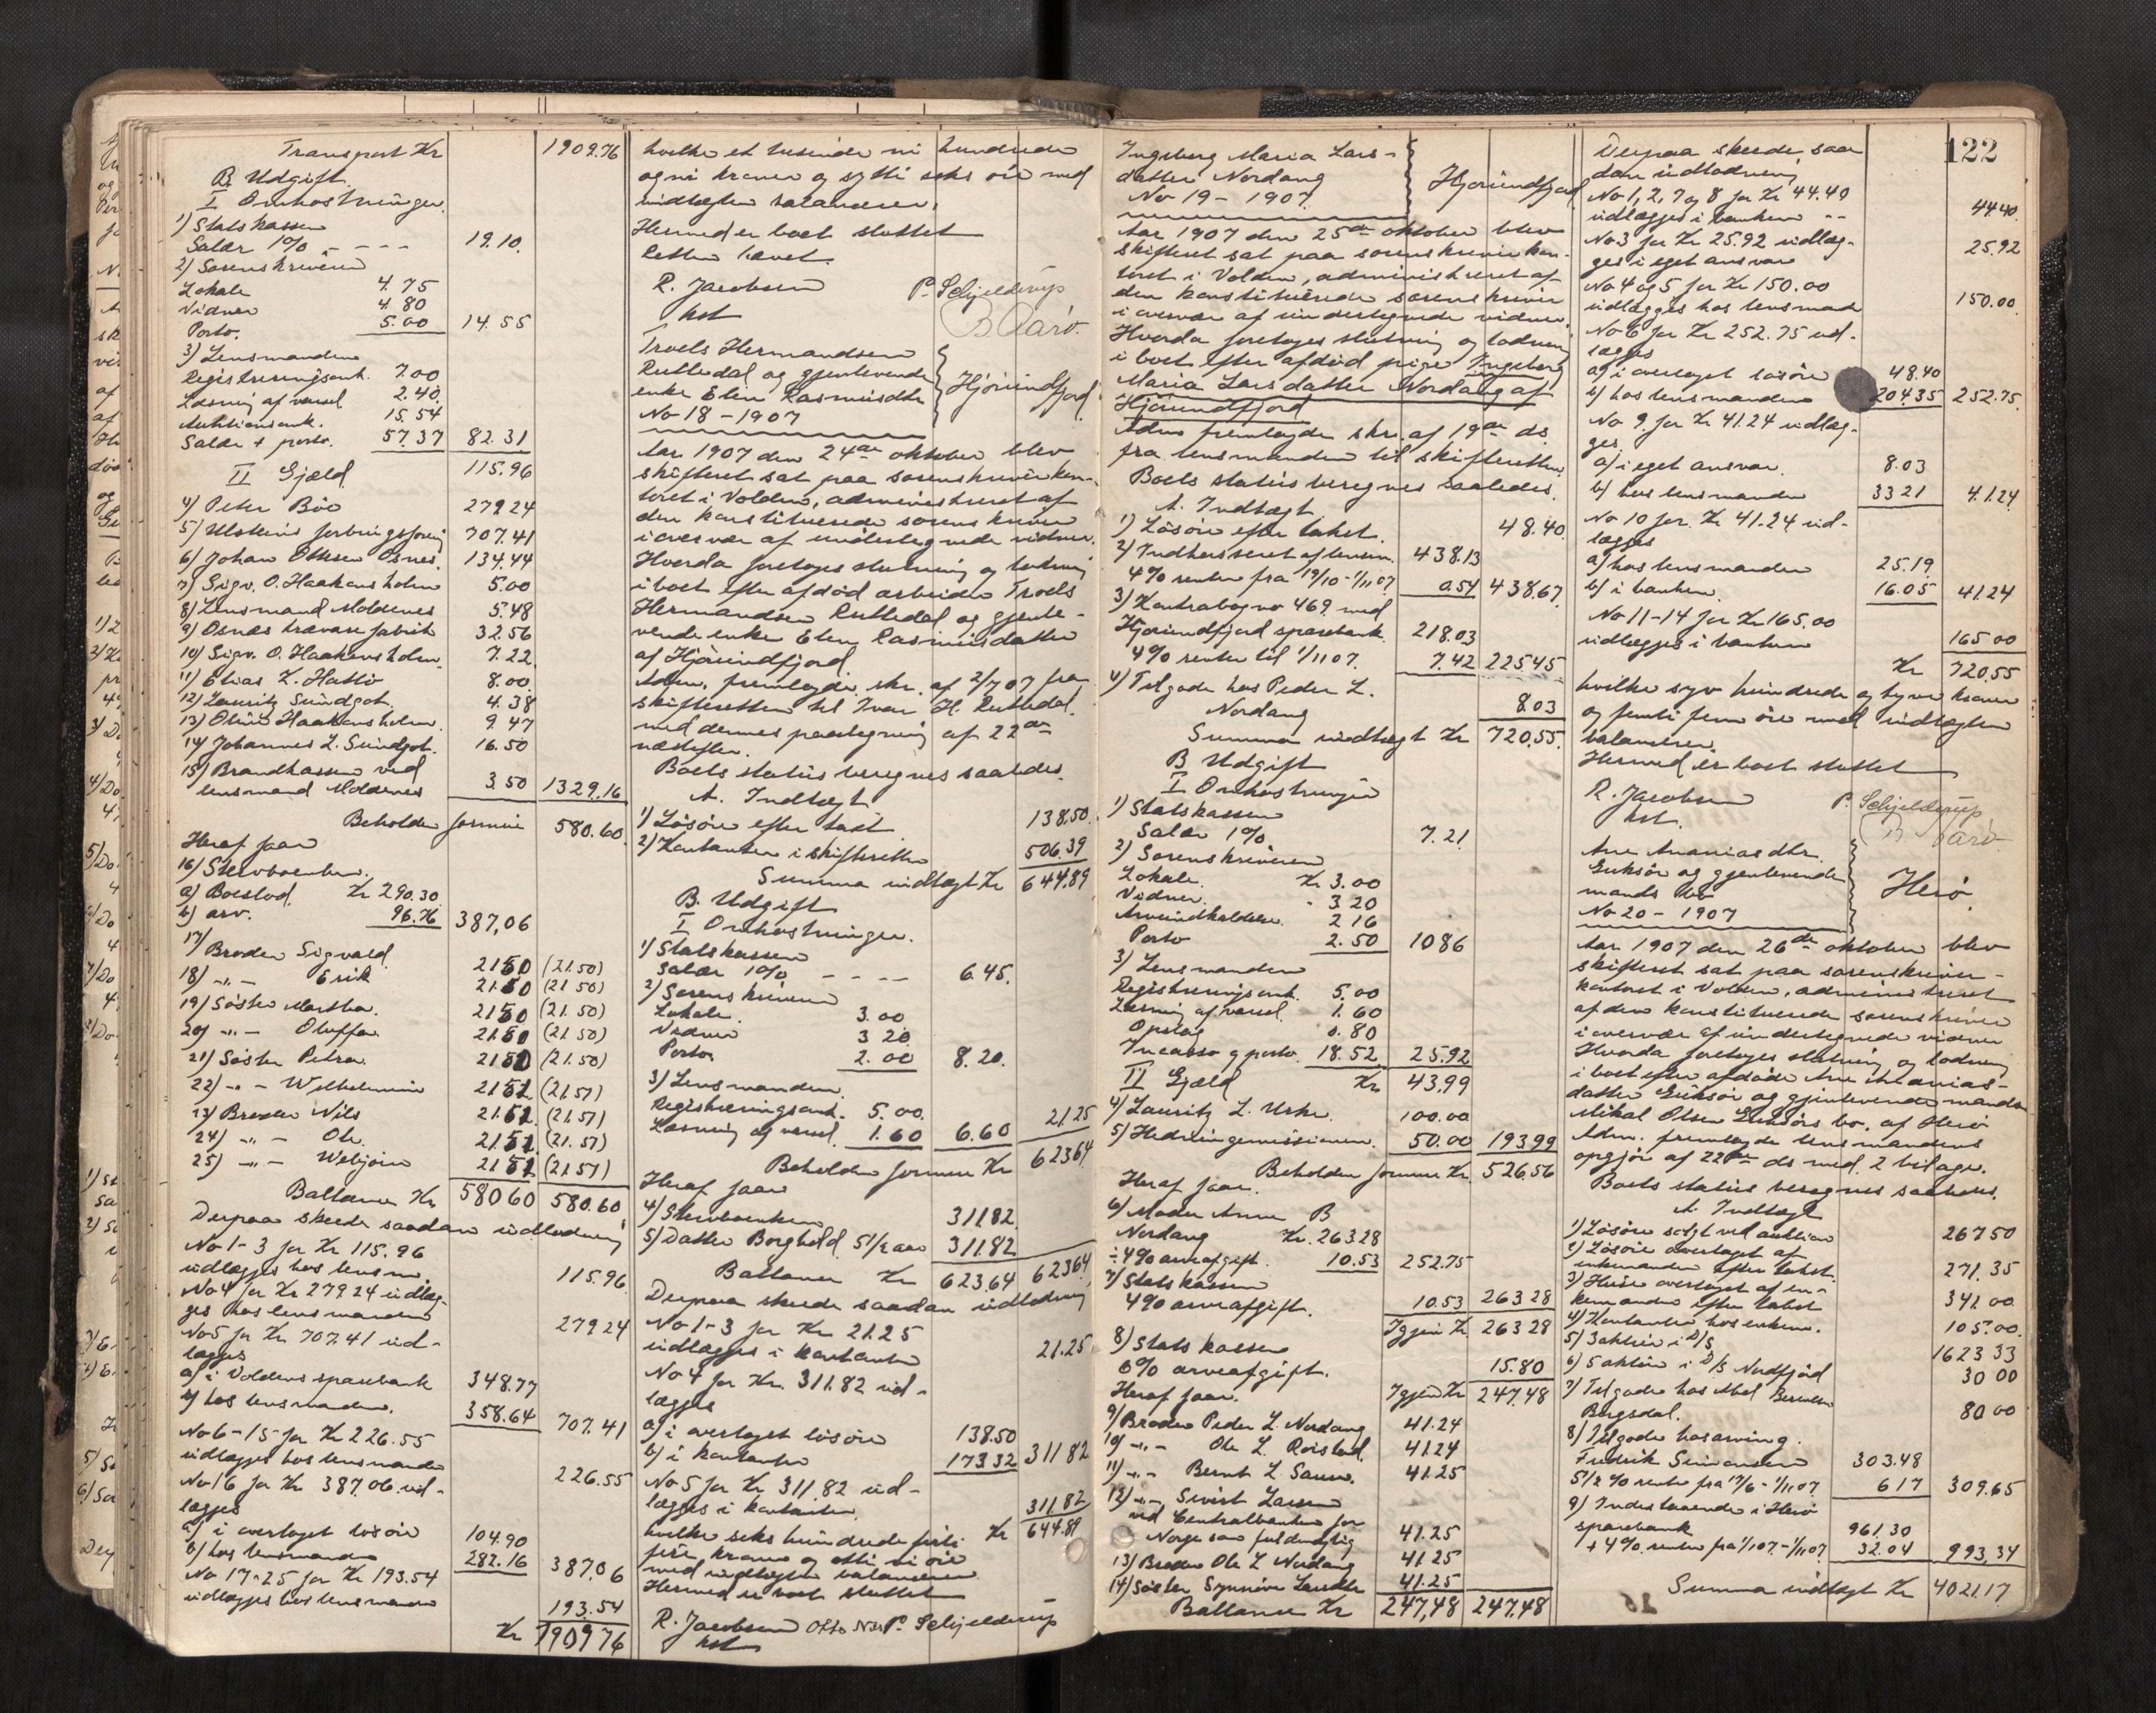 Transport Kr 1909.76
B. Udgift.
I Omkostninger.
1) Statskassen
Salær 1% - - - - 19.10.
2) Sorenskriveren
Lokale 4.75
Vidner 4.80
Porto. 5.00 14.55
3) Lensmanden
Registreringsomk. 7.00
Læsning af varsel 2.40.
Auktionsomk. 15.54
Salær + porto. 57.37 82.31
II Gjæld 115.96
4) Peter Böe 279.24
5) Ulsteins forbrugsforening 707.41
6) Johan Ottesen Osnes. 134.44
7) Sigv. O. Haakensholm 5.00
8) Lensmand Moldenes 5.48
9) Osnæs trævarefabrik 32.56
10) Sigv. O. Haakensholm. 7.22
11) Elias K. Hatlö 8.00
12) Lauritz Sundgot. 4.38
13) Oluf Haakensholm 9.47
14) Johannes L. Sundgot. 16.50
15) Brandkassen ved
lensmand Moldenes 3.50 1329.16
Beholden formue 580.60
Heraf faar
16) Stervboenken.
a) Boeslod. Kr 290.30
b) arv. 96.76 387,06
17) Broder Sigvald 21.50 (21.50)
18) -„- Erik 21.50 (21.50)
19) Søster Martha. 21.50 (21.50)
20) -„- Oluffa. 21.50 (21.50)
21) Søster Petra. 21.50 (21.50)
22) -„- Wilhelmine 21.51 (21.51)
23) Broder Nils 21.51 (21.51)
24) -„- Ole. 21.51 (21.51)
25) -„- Webjörn 21.51 (21.51)
Ballance Kr 580.60 580.60
Derpaa skeede saadan udlodning
No 1-3 for Kr 115.96
udlægges hos lensm. 115.96
No 4 for Kr 279.24 udlæg-
ges hos lensmanden 279.24
No 5 for Kr 707.41 ud-
lægges
a) i Voldens sparebank 348.77
b) hos lensmanden. 358.64 707.41
No 6-15 for Kr 226.55
udlægges hos lensmanden 226.55
No 16 for Kr 387.06 ud-
lægges
a) i overtaget lösöre 104.90
b) hos lensmanden 282.16 387.06
No 17-25 for Kr 193.54
udlægges hos lensmanden 193.54
Kr 1909.76
hvilke et tusinde ni hundrede
og ni kroner og sytti seks øre med
indtægten balancerer.
Hermed er boet sluttet
Retten hævet.
R. Jacobsen P. Schjelderup
kst B. Aarö.
Troels Hermandsen
Rutledal og gjenlevende
enke Elen Rasmusdtr
No 18 - 1907
Hjörundfjord
Aar 1907 den 24de oktober blev
skifteret sat paa sorenskriverkon-
toret i Volden, administreret af
den konstituerede sorenskriver
i overvær af undertegnede vidner.
Hvorda foretoges slutning og lodning
i boet efter afdöd arbeider Troels
Hermandsen Rutledal og gjenle-
vende enke Elen Rasmusdatter
af Hjörundfjord.
Adm. fremlagde skr. af 2/7 07 fra
skifteretten til Ivar H. Rutledal.
med dennes paategning af 22de
næstefter.
Boets status beregnes saaledes.
A. Indtægt
1) Lösöre efter takst 138.50.
2) Kontanter i skifteretten 506.39
Summa indtægt Kr 644.89
B. Udgift
I Omkostninger.
1) Statskassen
Salær 1% - - - - 6.45.
2) Sorenskriveren
Lokale. 3.00
Vidner 3.20
Porto. 2.00 8.20.
3) Lensmanden.
Registreringsomk. 5.00.
Læsning af varsel. 1.60 6.60 21.25
Beholden formue Kr 623.64
Heraf faar
4) Stervboenken 311.82
5) Datter Borghild 5 1/2 aar 311.82
Ballance Kr 623.64 623.64
Derpaa skeede saadan udlodning
No 1-3 for Kr 21.25
udlægges i kontanter 21.25
No 4 for Kr. 311.82 ud-
lægges
a) i overtaget lösöre 138.50
b) i kontanter 173.32 311.82
No 5 for Kr 311.82 ud-
lægges i kontanter. 311.82
Kr 644.89
hvilke seks hundrede firti
fire kroner og otti ni öre
med indtægten balancerer.
Hermed er boet sluttet
R. Jacobsen P. Schjelderup
kst
122
Ingeberg Maria Lars-
datter Nordang
No 19 - 1907.
Hjörundfjord
Aar 1907 den 25de oktober blev
skifteret sat paa sorenskriverkon-
toret i Volden, administreret af
den konstituerede sorenskriver
i overvær af undertegnede vidner.
Hvorda foretoges slutning og lodning
i boet efter afdöd pige Ingeberg
Maria Larsdatter Nordang af
Hjörundfjord
Adm fremlagde skr. af 19de ds.
fra lensmanden til skifteretten.
Boets status beregnes saaledes.
A. Indtægt
1) Lösöre efter takst. 48.40.
2) Indkasseret af lensm. 438.13
4% renter fra 19/10 - 1/11 07 0.54 438.67.
3) Kontrabog no 469 med
Hjörundfjord sparebank. 218.03
4% renter til 1/11 07. 7.42 225.45
4) Tilgode hos Peder L.
Nordang 8.03
Summa indtægt Kr 720.55.
B. Udgift
I Omkostninger
1) Statskassen
Salær 1% 7.21
2) Sorenskriveren
Lokale. Kr 3.00
Vidner. 3.20
Arveindkaldelse. 2.16
Porto 2.50 10.86
3) Lensmanden
Registreringsomk. 5.00
Læsning af varsel. 1.60
Opslag 0.80
Incasso g porto. 18.52 25.92
II Gjæld Kr 43.99
4) Lauritz L. Urke. 100.00
5) Hedningemissionen. 50.00 193.99
Beholden formue Kr. 526.56
Heraf faar.
6) Moder Anne B
Nordang Kr. 263.28
÷ 4% arveafgift. 10.53 252.75
7) Statskassen
4% arveafgift. 10.53 263.28
Igjen Kr 263.28
8) Statskassen
6% arveafgift. 15.80
Igjen Kr 247.48
Heraf faar.
9) Broder Peder L. Nordang 41.24
10) -„- Ole L. Roistad. 41.24
11) -„- Bernt L. Saure. 41.25
12) -„- Sivert Larsen
ved Centralbanken for
Norge som fuldmægtig 41.25
13) Broder Ole L. Nordang 41.25
14) Søster Synnøve Larsdtr 41.25
Ballance Kr 247,48 247.48
Derpaa skeede saa
dan udlodning
No 1, 2, 7 og 8 for Kr 44.40
udlægges i banken -- 44.40.
No 3 for Kr 25.92 udlæg-
ges i eget ansvar 25.92
No 4 og 5 for Kr 150.00
udlægges hos lensmanden 150.00.
No 6 for Kr 252.75 ud-
lægges
a) i overtaget lösöre 48.40
b) hos lensmanden 204.35 252.75.
No 9 for Kr 41.24 udlæg-
ges
a) i eget ansvar. 8.03
b) hos lensmanden 33.21 41.24
No 10 for Kr 41.24 ud-
lægges
a) hos lensmanden 25.19
b) i banken. 16.05 41.24
No 11-14 for Kr 165.00
udlægges i banken 165.00
Kr 720.55
hvilke syv hundrede og tyve kroner
og femti fem öre med indtægten
balancerer.
Hermed er boet sluttet
R. Jacobsen P. Schjelderup
kst. B. Aarö
Ane Ananiasdtr.
Eiksör og gjenlevende
mands bo
No 20 - 1907
Herö.
Aar 1907 den 26de oktober blev
skifteret sat paa sorenskriver-
kontoret i Volden, administreret
af den konstituerede sorenskriver
i overvær af undertegnede vidner
Hvorda foretoges slutning og lodning
i boet efter afdöde Ane Ananias-
datter Eiksör og gjenlevende mands
Mikal Olsen Eiksörs bo, af Herö
Adm. fremlagde lensmandens
opgjör af 22de ds med 2 bilage.
Boets status beregnes saaledes.
A. Indtægt
1) Lösöre solgt ved auktion 267.50
2) Lösöre overtaget af
enkemanden efter takst. 271.35
3) Huse overtaget af en-
kemanden efter takst 341.00
4) Kontanter hos enkem. 105.00.
5) 3 aktier i D/S 1623.33
6) 5 aktier i D/S Nordfjord 30.00
7) Tilgode hos Abel
Bergsdal. 80.00
8) Tilgode hos arving.
Fredrik Simonsen 303.48
5 1/2 % renter fra 17/6 - 1/11 07. 6.17 309.65
9) Indestaaende i Herö
sparebank 961.30
+ 4% renter fra 1/1 07 - 1/11 07. 32.04 993.34
Summa indtægt Kr 4021.17